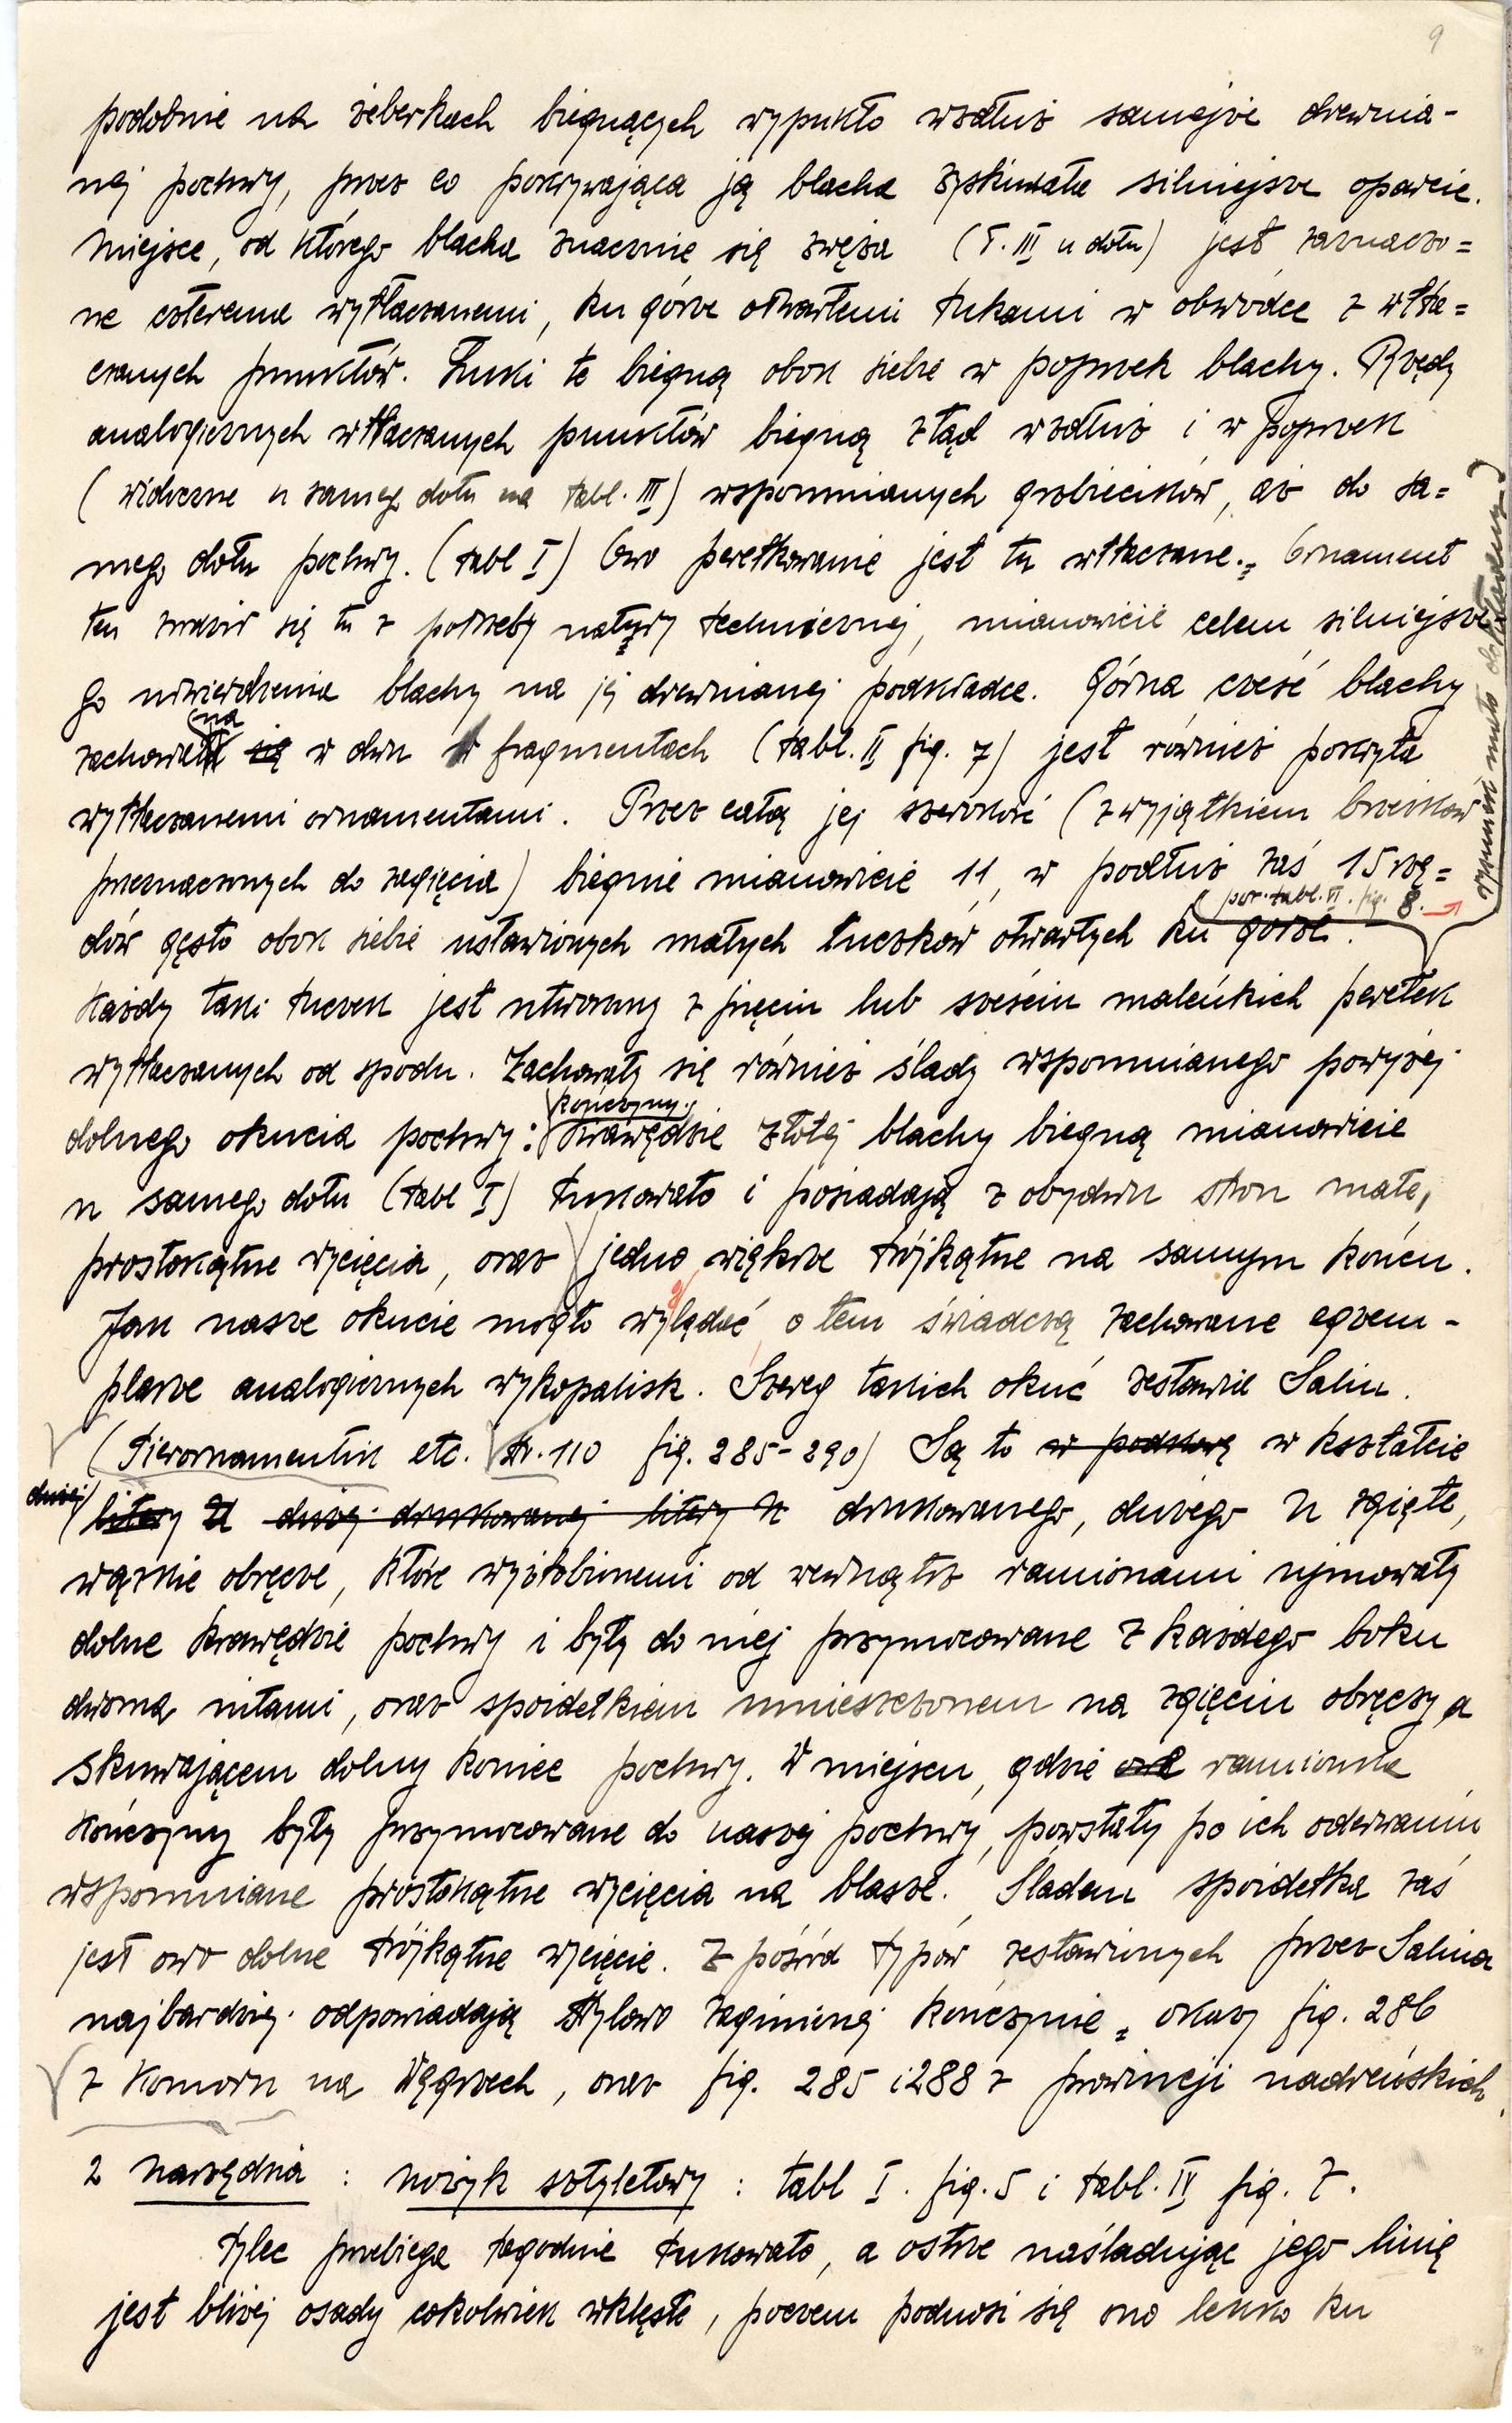 9
podobnie na żeberkach biegnących wypukło wzdłuż samejże drewnia-
nej pochwy, przez co pokrywająca ją blacha zyskiwała silniejsze oparcie.
Miejsce, od którego blacha znacznie się zwęża (T. III u dołu) jest zaznaczo=
ne czterema wytłaczanemi, ku górze otwartemi łukami w obwódce z wtła=
czanych punktów. Łuki te biegną obok siebie w poprzek blachy. Rzędy
analogicznych wtłaczanych punktów biegną ztąd wzdłuż i w poprzek
(widoczne u samego dołu na tabl. III) wspomnianych grzbiecików, aż do sa=
mego dołu pochwy. (tabl I) Owo perełkowanie jest tu wtłaczane. Ornament
ten zrodził się tu z potrzeby natury technicznej, mianowicie celem silniejsze
go utwierdzenia blachy na jej drewnianej podkładce. Górna cześć blachy
na
zachowała się w dwu fragmentach (tabl. II fig. 7) jest również pokryta
wytłaczanemi ornamentami. Przez całą jej szerokość (z wyjątkiem brzeżków
przeznaczonych do zagięcia) biegnie mianowicie 11, w podłuż zaś 15 rzę=
por. tabl. VI. fig. 8.
dów gęsto obok siebie ustawionych małych łuczków otwartych ku górze.
rysunek mało dokładny
Każdy taki łuczek jest utworzony z pięciu lub sześciu maleńkich perełek
wytłaczanych od spodu. Zachowały się również ślady wspomnianego powyżej
kończyny.
dolnego okucia pochwy: Krawędzie złotej blachy biegną mianowicie
u samego dołu (tabl I) łukowato i posiadają z obydwu stron małe,
prostokątne wycięcia, oraz jedno większe trójkątne na samym końcu.
Jak nasze okucie mogło wyglądać, o tem świadczą zachowane egzem-
plarze analogicznych wykopalisk. Szereg takich okuć zestawił Salin.
(Tierornamentik etc. str. 110 fig. 285-290) Są to w podkowę w kształcie
dużej litery U dużej drukowanej litery U drukowanego, dużego U zgięte,
wązkie obręcze, które wyżłobionemi od wewnątrz ramionami ujmowały
dolne krawędzie pochwy i były do niej przymocowane z każdego boku
dwoma nitami, oraz spoidełkiem umieszczonem na zgięciu obręczy a
skuwającem dolny koniec pochwy. W miejscu, gdzie one ramionka
kończyny były przymocowane do naszej pochwy, powstały po ich oderwaniu
wspomniane prostokątne wycięcia na blasze. Śladem spoidełka zaś
jest owo dolne trójkątne wycięcie. Z pośród typów zestawionych przez Salina
najbardziej odpowiadają stylowo zaginionej kończynie okazy fig. 286
z Komorn na Węgrzech, oraz fig. 285 i 288 z prowincji nadreńskich.
2 narzędzia : nożyk sztyletowy : tabl I. fig. 5 i tabl. IV fig. 7.
Tylec przebiega łagodnie łukowato, a ostrze naśladując jego linię
jest bliżej osady cokolwiek wklęsłe, poczem podnosi się ono lekko ku